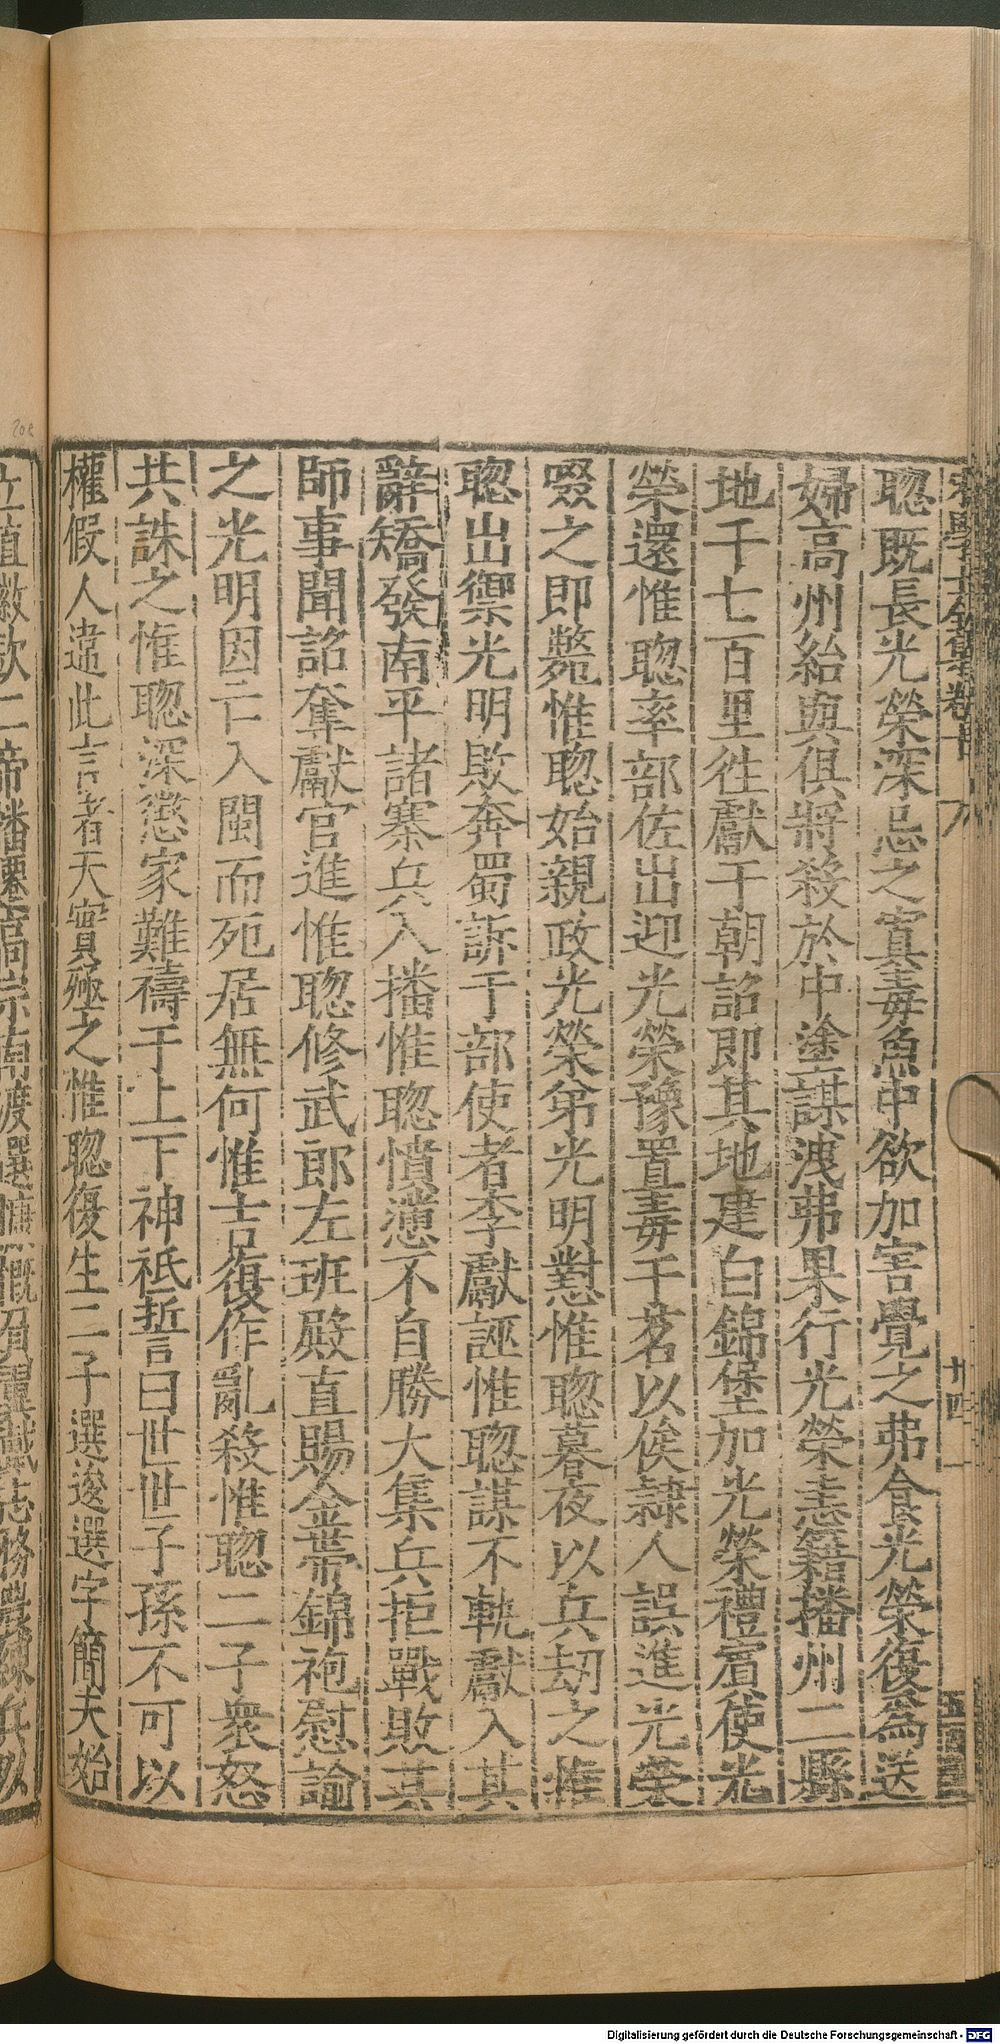 聦既長光榮深忌之寘毒魚中欲加害覺之弗食光榮復為送
婦高州紿與俱將殺於中塗謀洩弗果行光榮恚籍播州二縣
地千七百里往獻于朝詔即其地建白錦堡加光榮禮賓使光
榮還惟聦率部佐出迎光榮豫置毒于茗以俟隷人誤進光榮
啜之即斃惟聦始親政光榮弟光明懟惟聦暮夜以兵刼之惟
聦出禦光明敗奔蜀訴于部使者李獻誣惟聦謀不軌獻入其
辭矯發南平諸寨兵入播惟聦憤懣不自勝大集兵拒戰敗其
師事聞詔奪獻官進惟聦修武郎左班殿直賜金帶錦袍慰諭
之光明因亡入閩而死居無何惟吉復作亂殺惟聦二子衆怒
共誅之惟聦深懲家難禱于上下神祇誓曰世世子孫不可以
權假人違此言者天實殛之惟聦復生二子選逡選字簡夫始
廿四
Digitalisierung gefördert durch die Deutsche Forschungsgemeinschaft - DFG